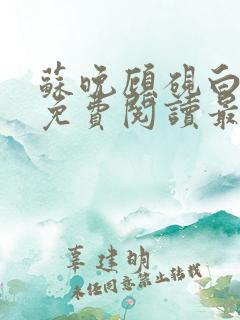 蘇晚顧硯白
免費閱讀最
辜建明
未經同意禁止轉載